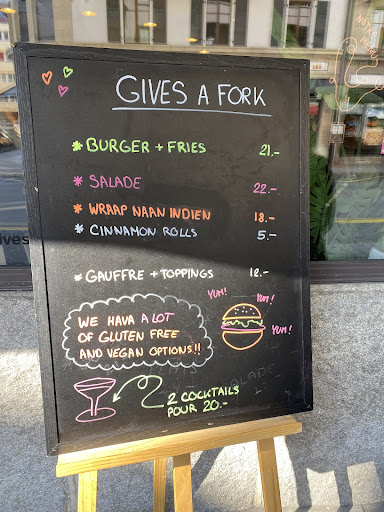 GIVES A FORK
* BURGER + FRIES 21.-
* SALADE 22.-
* WRAAP NAAN INDIEN 18.-
* CINNAMON ROLLS 5.-
* GAUFFRE + TOPPINGS 12.-
YUM! YUM!
YUM!
WE HAVA A LOT
OF GLUTEN FREE
AND VEGAN OPTIONS!!
2 COCKTAILS
POUR 20.-